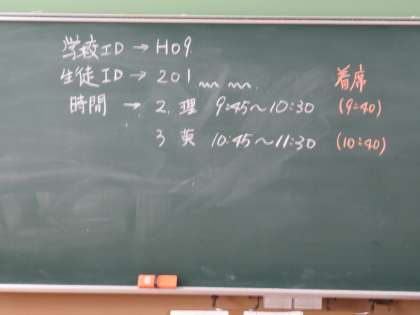 学校ID → H09
生徒ID → 201
着席
時間 → 2. 理 9:45〜10:30 (9:40)
3 英 10:45〜11:30 (10:40)